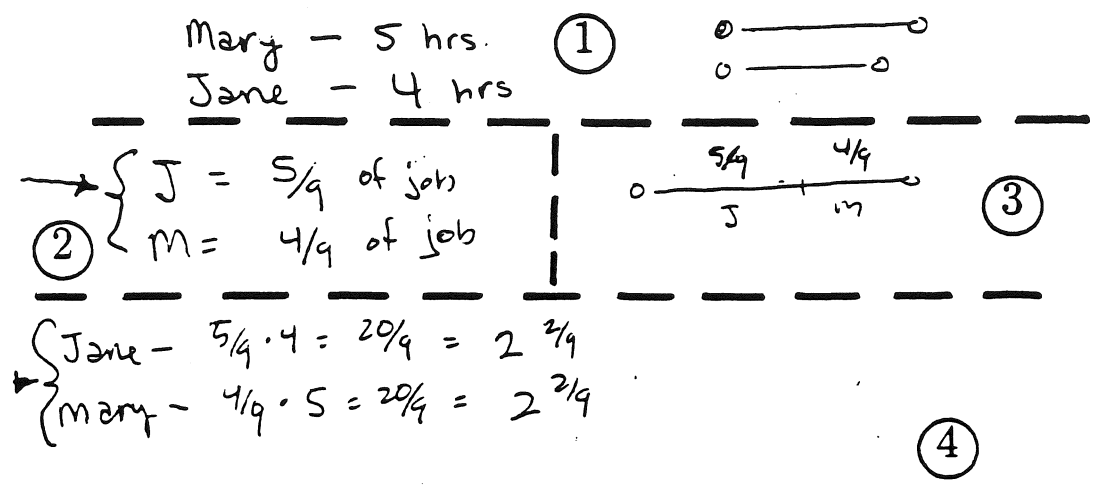 Mary - 5 hrs.
①
Jane - 4 hrs
J = 5/9 of job
M = 4/9 of job
②
5/9 4/9
J m
③
Jane - 5/9 · 4 = 20/9 = 2 2/9
Mary - 4/9 · 5 = 20/9 = 2 2/9
④